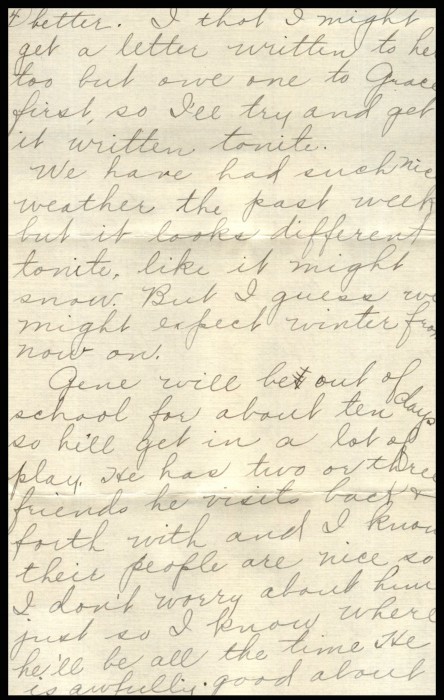 better. I thot I might
get a letter written to he
too but owe one to Grace
first, so I'll try and get
it written tonite.
We have had such nic
weather the past week
but it looks different
tonite, like it might
snow. But I guess we
might expect winter from
now on.
Gene will be out of
school for about ten days
so he'll get in a lot of
play. He has two or three
friends he visits back &
forth with and I know
their people are nice so
I don't worry about him
just so I know where
he'll be all the time He
is awfully good about